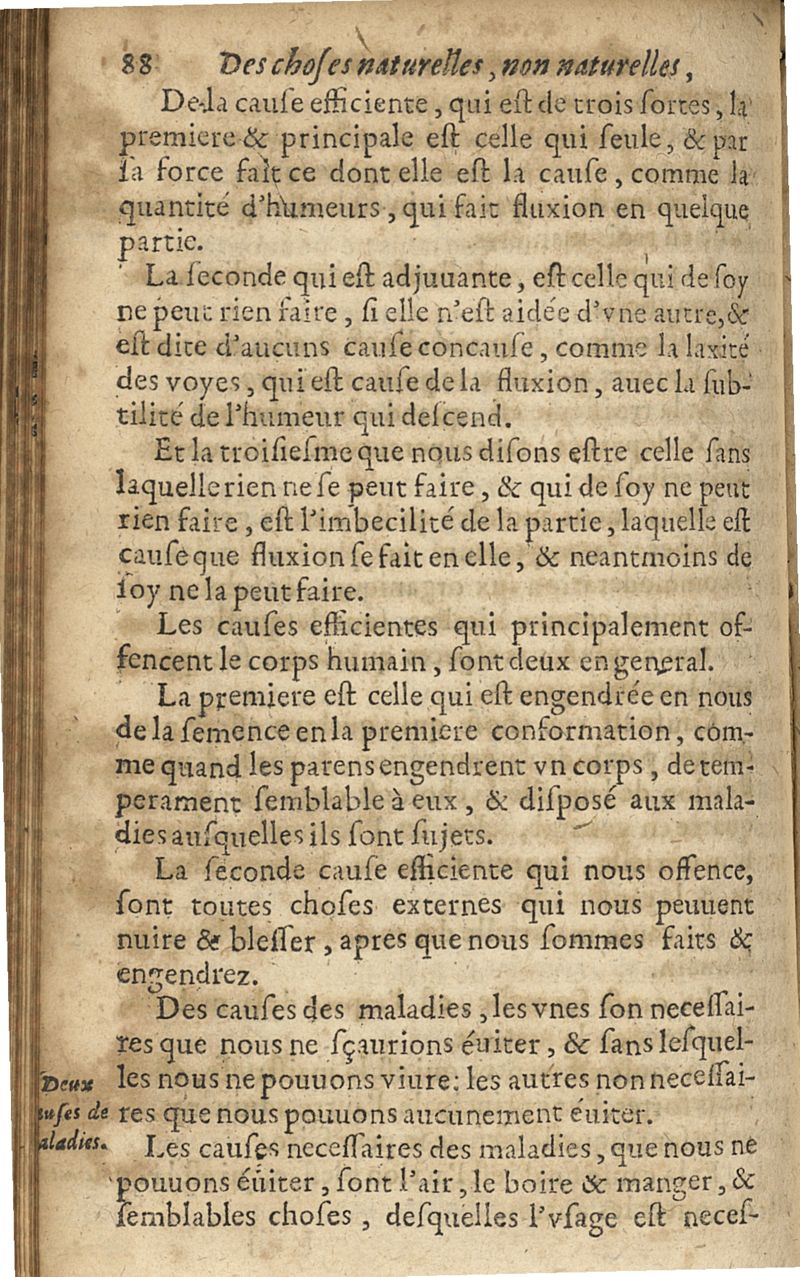 88 Des choſes naturelles, non naturelles,
De la cauſe efficiente, qui eſt de trois ſortes, la
premiere & principale eſt celle qui ſeule, & par
ſa force fait ce dont elle eſt la cauſe, comme la
quantité d'humeurs, qui fait fluxion en quelque
partie.
La ſeconde qui eſt adjuuante, eſt celle qui de ſoy
ne peut rien faire, ſi elle n'eſt aidée d'vne autre, &
eſt dite d'aucuns cauſe concauſe, comme la laxité
des voyes, qui eſt cauſe de la fluxion, auec la ſub-
tilité de l'humeur qui deſcend.
Et la troiſieſme que nous diſons eſtre celle ſans
laquelle rien ne ſe peut faire, & qui de ſoy ne peut
rien faire, eſt l'imbecilité de la partie, laquelle eſt
cauſe que fluxion ſe fait en elle, & neantmoins de
ſoy ne la peut faire.
Les cauſes efficientes qui principalement of-
fencent le corps humain, ſont deux en general.
La premiere eſt celle qui eſt engendrée en nous
de la ſemence en la premiere conformation, com-
me quand les parens engendrent vn corps, de tem-
perament ſemblable à eux, & diſpoſé aux mala-
dies auſquelles ils ſont ſujets.
La ſeconde cauſe efficiente qui nous offence,
ſont toutes choſes externes qui nous peuuent
nuire & bleſſer, apres que nous ſommes faits &
engendrez.
Des cauſes des maladies, les vnes ſon neceſſai-
res que nous ne ſçaurions éuiter, & ſans leſquel-
les nous ne pouuons viure: les autres non neceſſai-
res que nous pouuons aucunement éuiter.
Deux
uſes de
aladies.
Les cauſes neceſſaires des maladies, que nous ne
pouuons éuiter, ſont l'air, le boire & manger, &
ſemblables choſes, deſquelles l'vſage eſt neceſ-